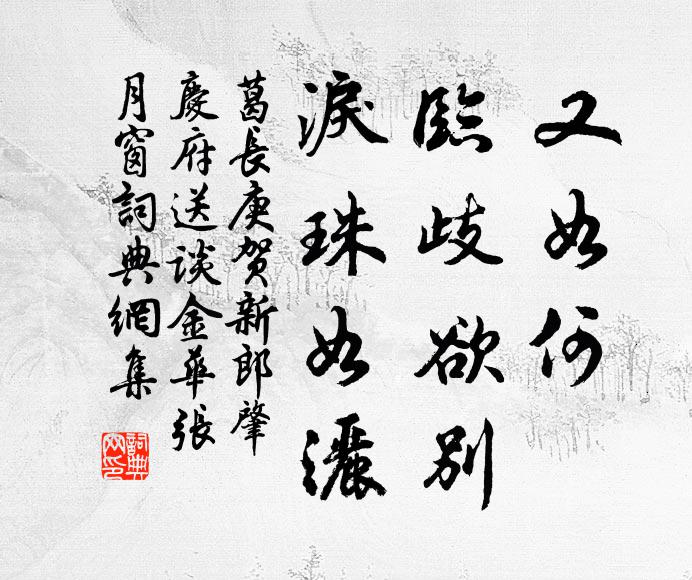 又如何
臨歧欲別
淚珠如灑
葛長庚賀新郎肇
慶府送談金華張
月窗詞典網集
詞典網印